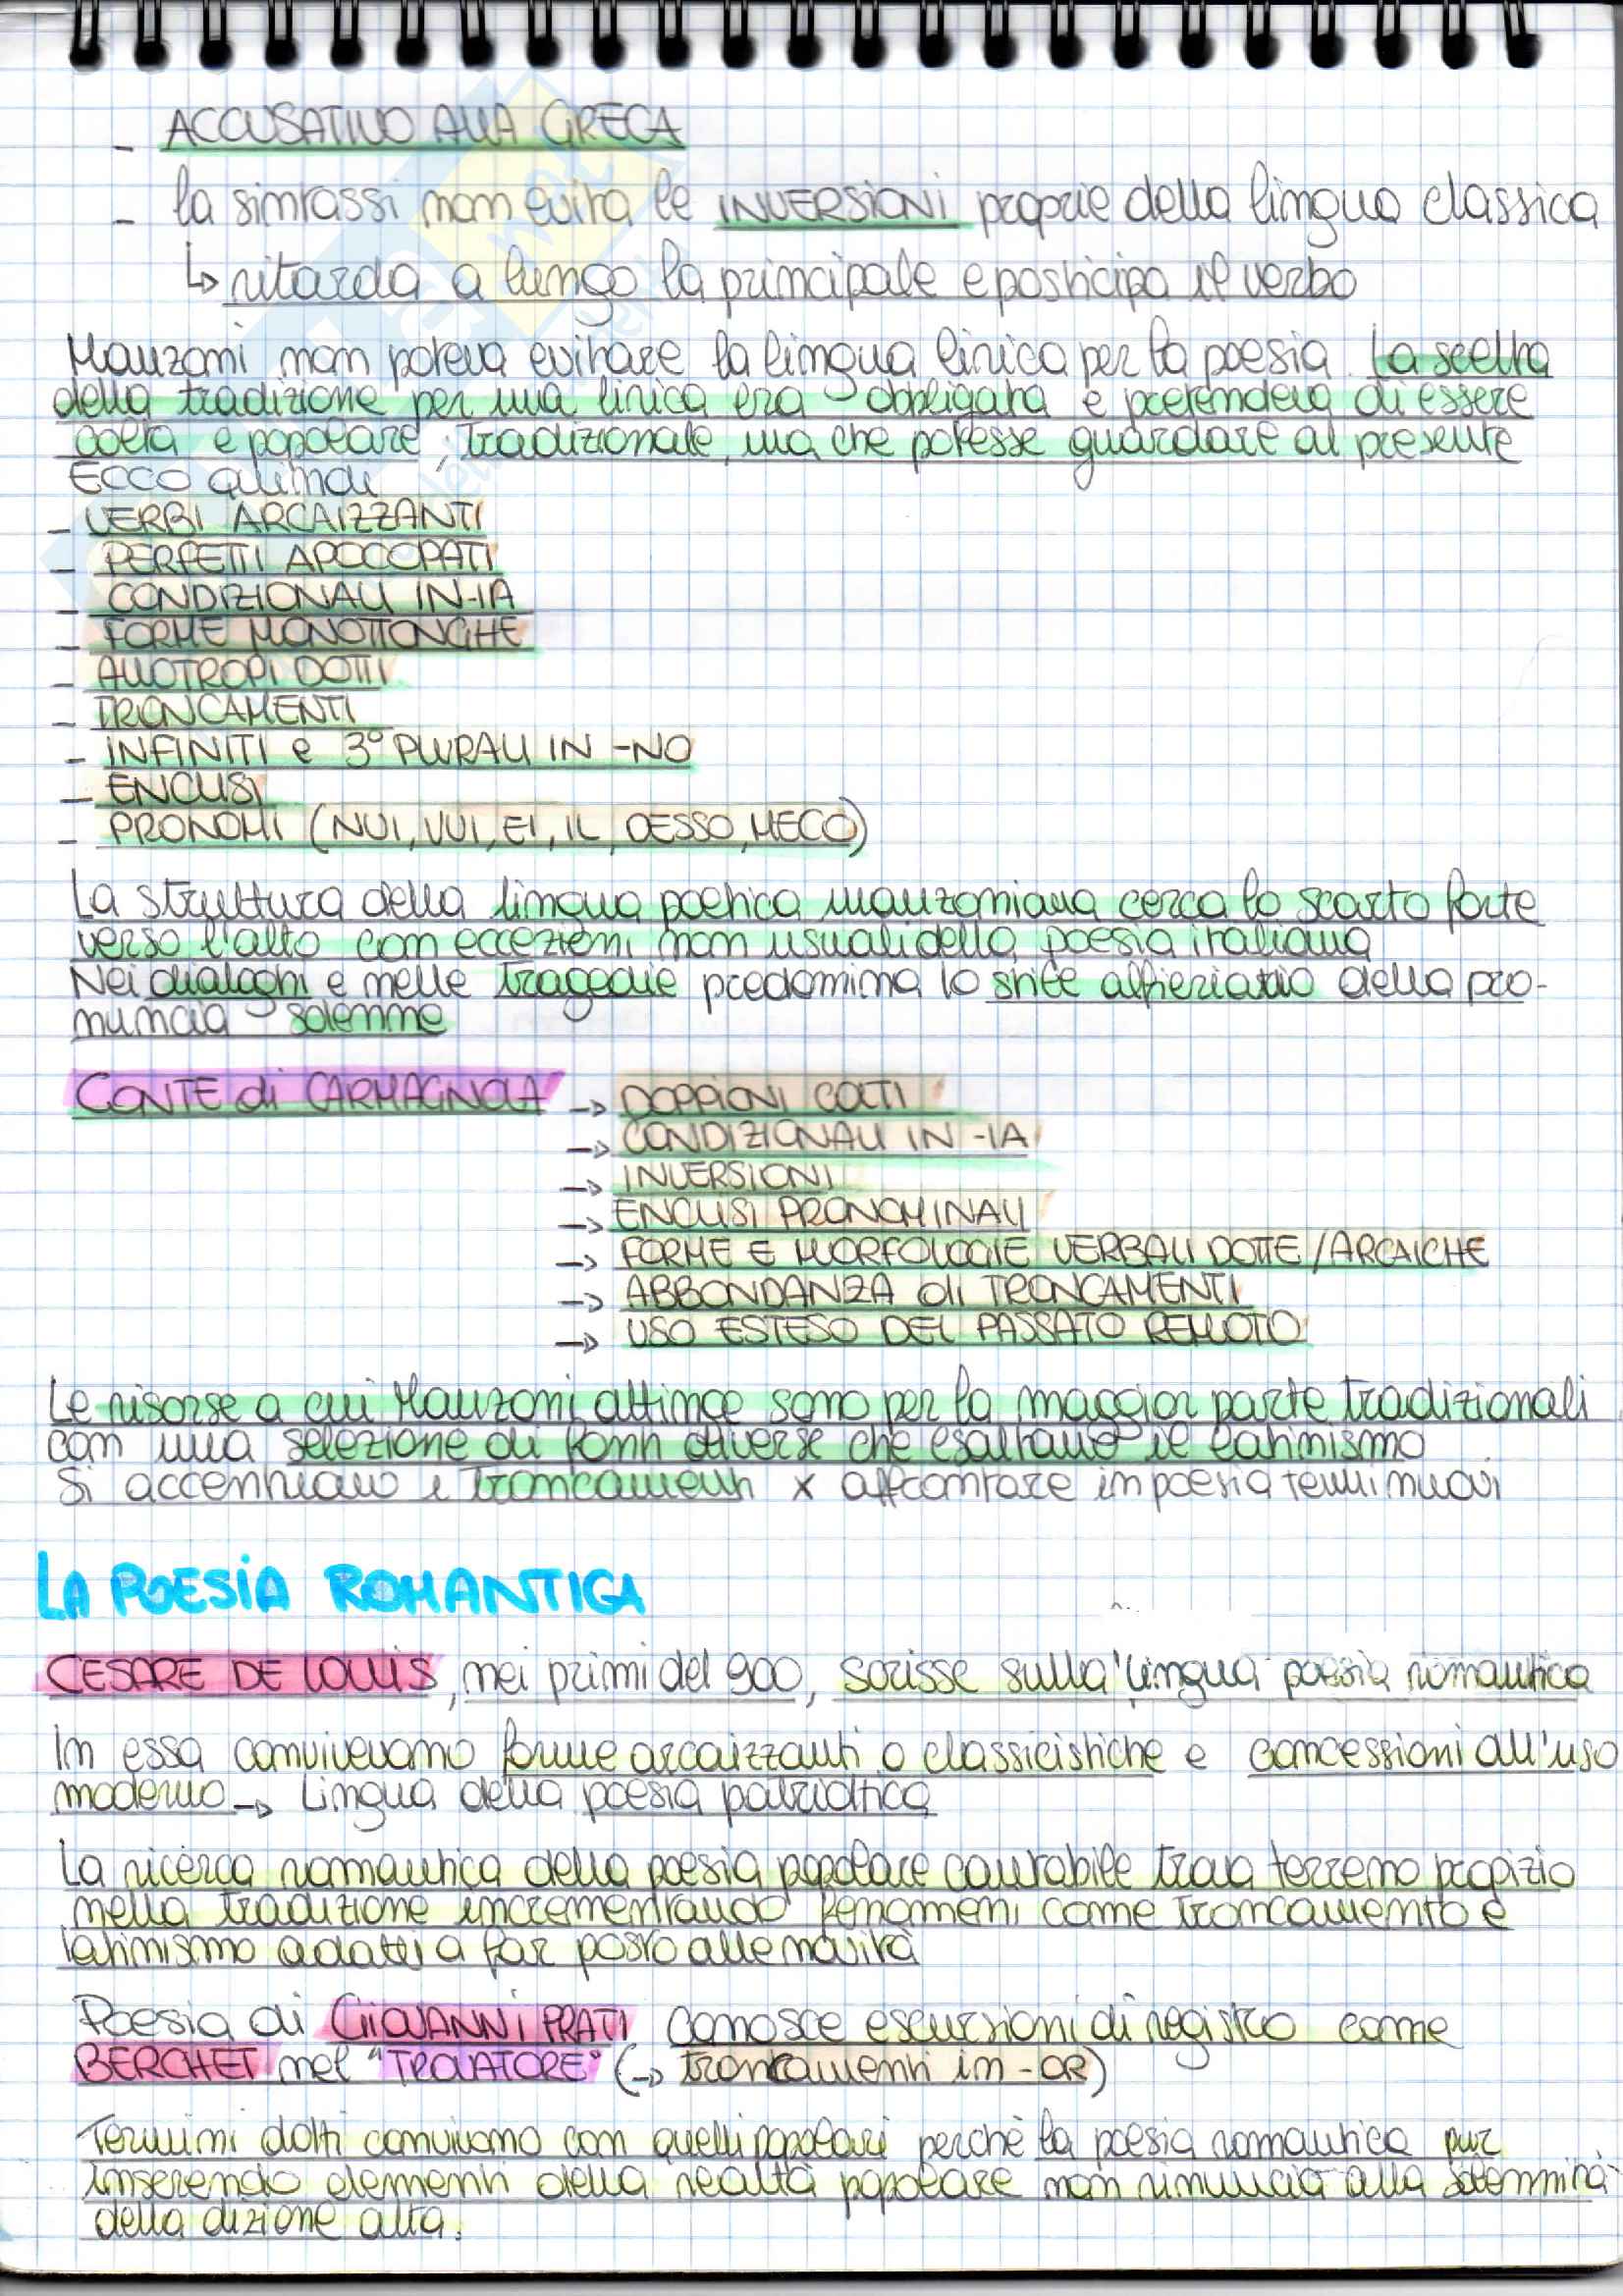 - ACCUSATIVO ALLA GRECA
- la sintassi non evita le INVERSIONI proprie della lingua classica
↳ ritarda a lungo la principale e posticipa il verbo
Manzoni non poteva evitare la lingua lirica per la poesia. La scelta
della tradizione per una lirica era obbligata e pretendeva di essere
colta e popolare, tradizionale, ma che potesse guardare al presente
Ecco quindi
- VERBI ARCAIZZANTI
- PERFETTI APOCOPATI
- CONDIZIONALI IN -IA
- FORME MONOTTONGHE
- ALLOTROPI DOTTI
- TRONCAMENTI
- INFINITI e 3° PLURALI IN -NO
- ENCLISI
- PRONOMI (NUI, VUI, EI, IL, DESSO, MECO)
La struttura della lingua poetica manzoniana cerca lo scarto forte
verso l'alto con eccezioni non usuali della poesia italiana
Nei dialoghi e nelle tragedie predomina lo stile alfieriano della pro-
nuncia solenne
CONTE di CARMAGNOLA → DOPPIONI COLTI
→ CONDIZIONALI IN -IA
→ INVERSIONI
→ ENCLISI PRONOMINALI
→ FORME E MORFOLOGIE VERBALI DOTTE/ARCAICHE
→ ABBONDANZA di TRONCAMENTI
→ USO ESTESO DEL PASSATO REMOTO
Le risorse a cui Manzoni attinge sono per la maggior parte tradizionali
con una selezione di fonti diverse che esaltano il latinismo
Si accentuano i troncamenti x affrontare in poesia temi nuovi
LA POESIA ROMANTICA
CESARE DE LOLLIS, nei primi del 900, scrisse sulla lingua poesia romantica
In essa convivevamo forme arcaizzanti o classicistiche e concessioni all'uso
moderno → Lingua della poesia patriottica
La ricerca romantica della poesia popolare cantabile trova terreno propizio
nella tradizione incrementando fenomeni come troncamento e
latinismo adatti a far posto alle novità
Poesia di GIOVANNI PRATI conosce escursioni di registro come
BERCHET nel "TROVATORE" (→ troncamenti in -OR)
Termini dotti convivono con quelli popolari perchè la poesia romantica pur
inserendo elementi della realtà popolare non rinuncia alla solennità
della dizione alta.